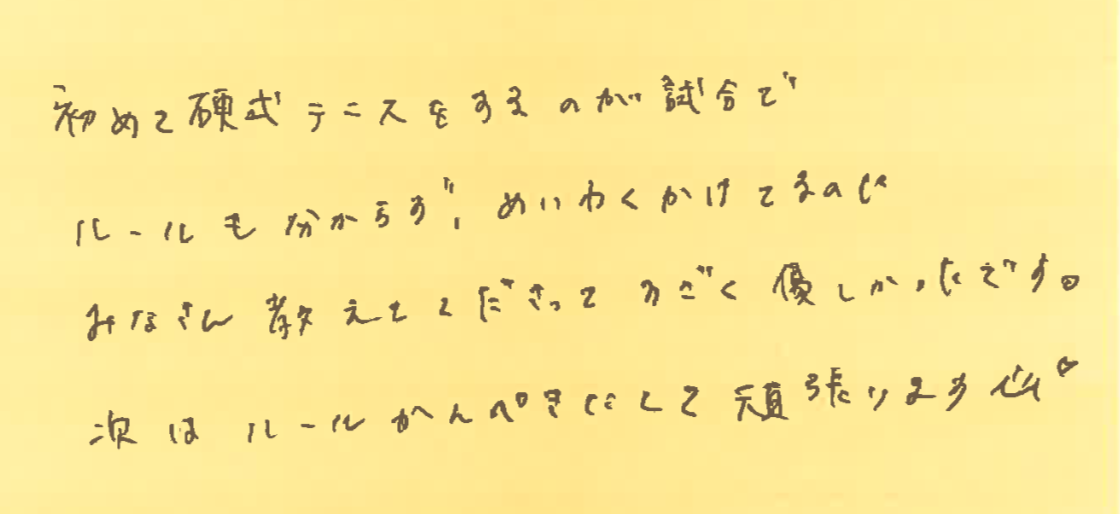 初めて硬式テニスをするのが試合で
ルールも分からず、めいわくかけてるのに
みなさん教えてくださってすごく優しかったです。
次はルールかんぺきにして頑張ります